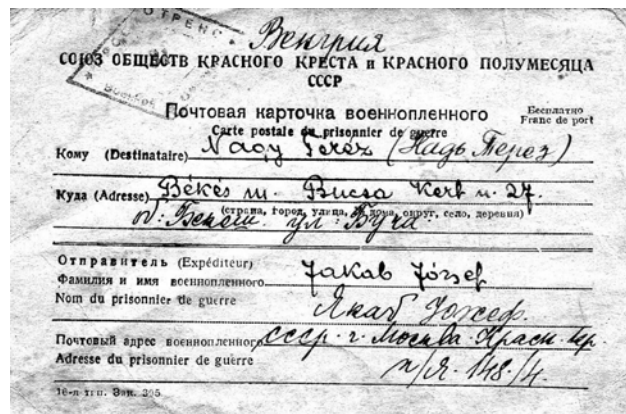 Венгрия
СОЮЗ ОБЩЕСТВ КРАСНОГО КРЕСТА и КРАСНОГО ПОЛУМЕСЯЦА
СССР
Почтовая карточка военнопленного
Бесплатно
Carte postale du prisonnier de guerre
Franc de port
Кому (Destinataire) Nagy Teréz (Надь Терез)
Куда (Adresse) Békés m. Bucsa Kert u. 27.
(страна, город, улица, № дома, округ, село, деревня)
об: Бекеш ул: Буча
Отправитель (Expéditeur)
Фамилия и имя военнопленного Jakab József
Nom du prisonnier de guerre Якаб Южеф.
Почтовый адрес военнопленного СССР. г. Москва. Красн. Кер.
Adresse du prisonnier de guerre п/я. 148/4.
16-я тип. Зак. 395